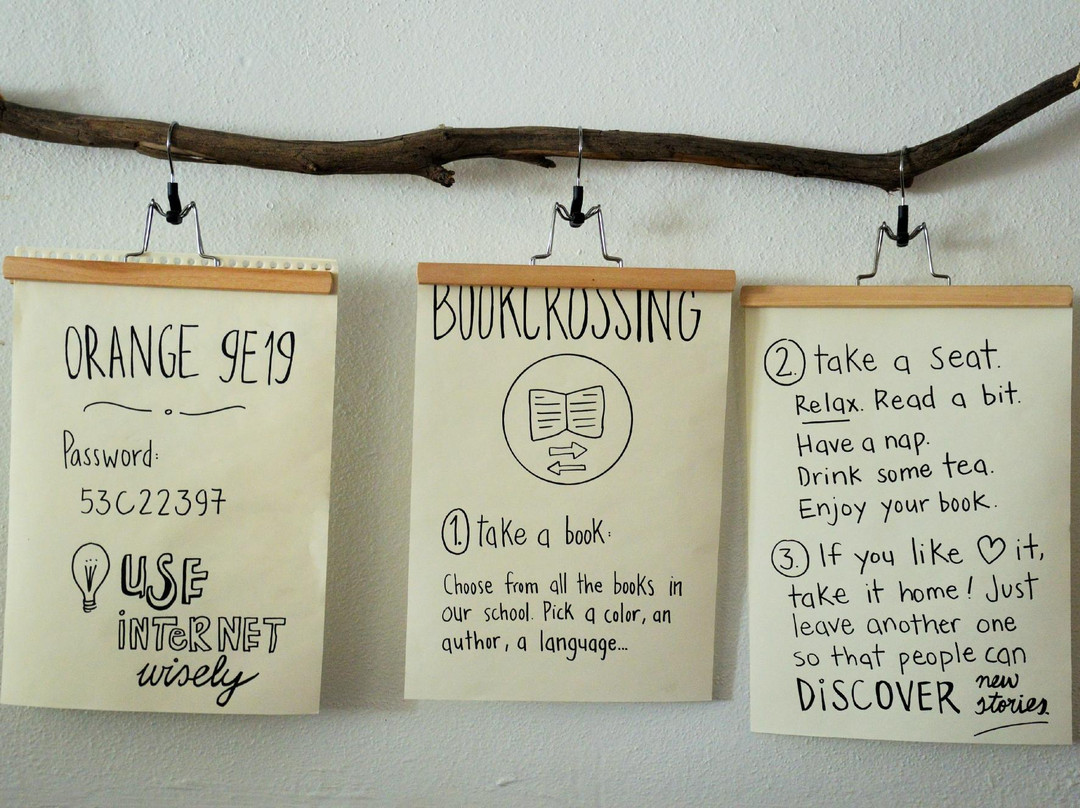 ORANGE 9E19
Password:
53C22397
USE
iNTeRNET
wisely
BOOKCROSSING
1. take a book:
Choose from all the books in
our school. Pick a color, an
author, a language...
2. take a seat.
Relax. Read a bit.
Have a nap.
Drink some tea.
Enjoy your book.
3. If you like ♡ it,
take it home! Just
leave another one
so that people can
DiSCOVER new
stories.